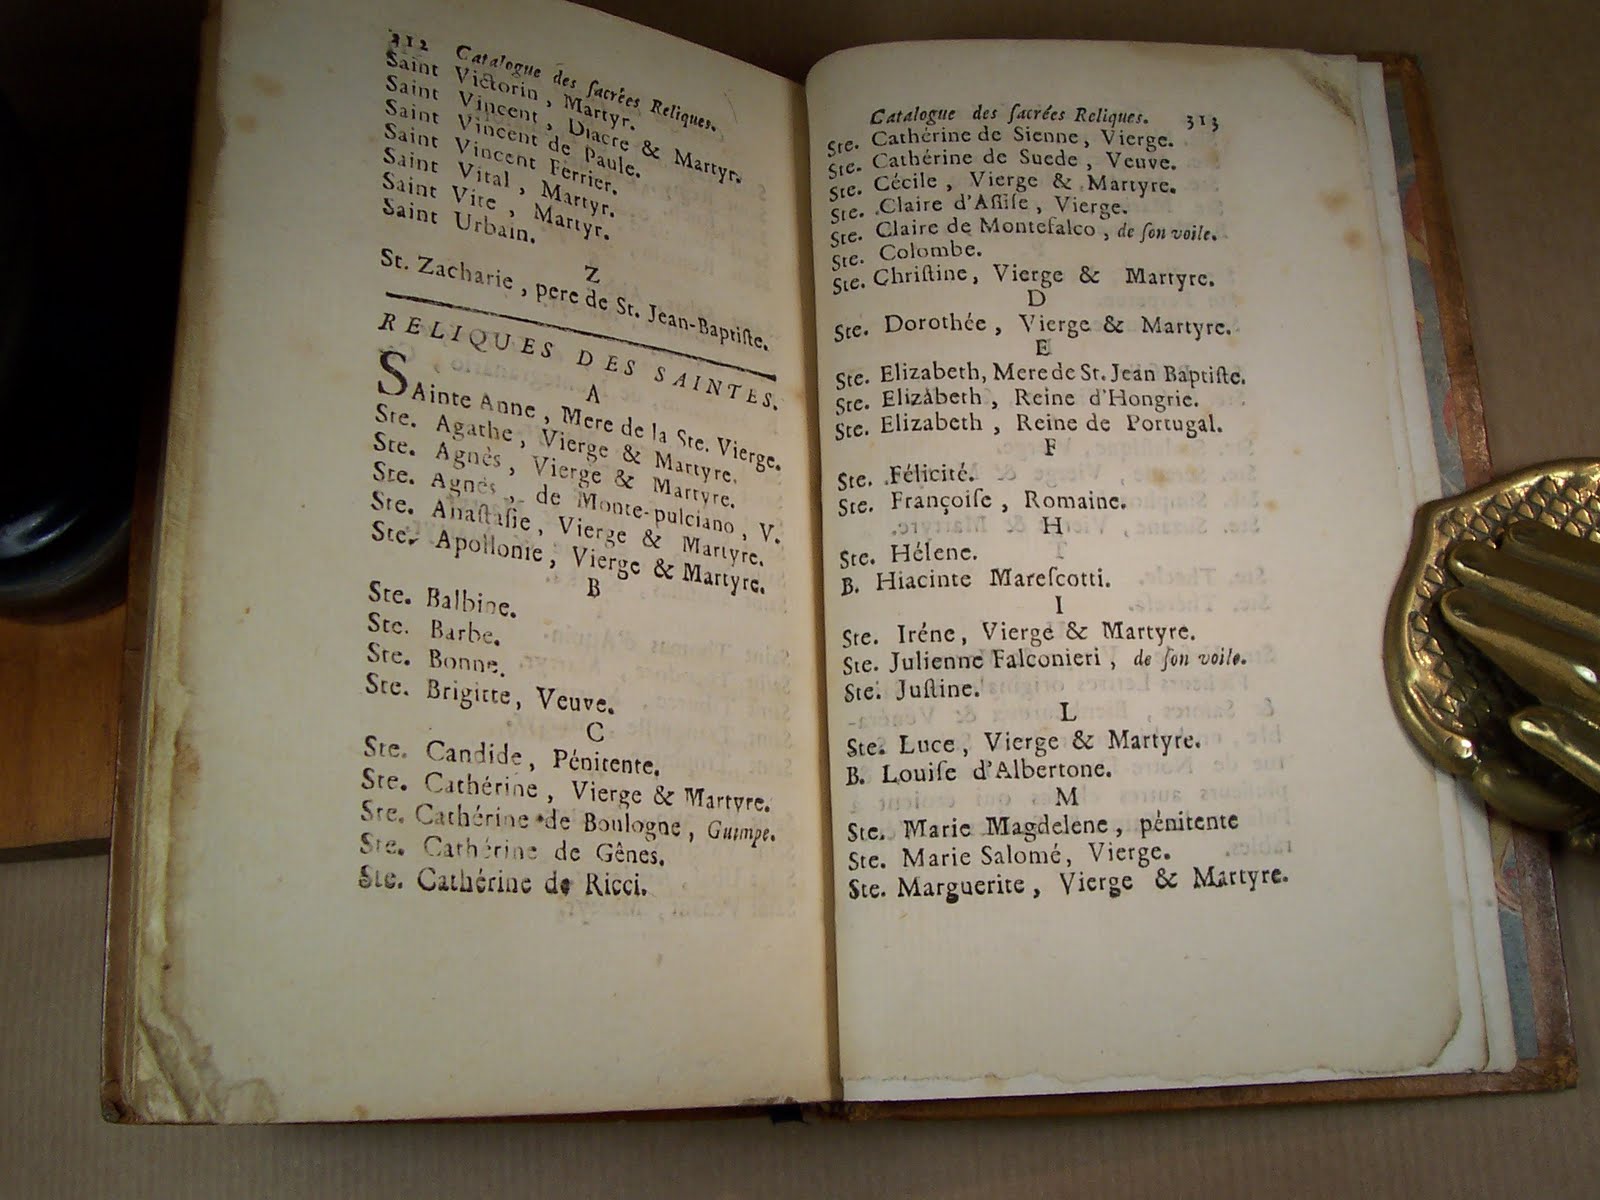 312 Catalogue des ſacrées Reliques.
Saint Victorin, Martyr.
Saint Vincent, Diacre & Martyr.
Saint Vincent de Paule.
Saint Vincent Ferrier.
Saint Vital, Martyr.
Saint Vite, Martyr.
Saint Urbain.
Z
St. Zacharie, pere de St. Jean-Baptiſte.
RELIQUES DES SAINTES.
A
SAinte Anne, Mere de la Ste. Vierge.
Ste. Agathe, Vierge & Martyre.
Ste. Agnès, Vierge & Martyre.
Ste. Agnès, de Monte-pulciano, V.
Ste. Anaſtaſie, Vierge & Martyre.
Ste. Apollonie, Vierge & Martyre.
B
Ste. Balbine.
Ste. Barbe.
Ste. Bonne.
Ste. Brigitte, Veuve.
C
Ste. Candide, Pénitente.
Ste. Cathérine, Vierge & Martyre.
Ste. Cathérine de Boulogne, Guimpe.
Ste. Cathérine de Gênes.
Ste. Cathérine de Ricci.
Catalogue des ſacrées Reliques. 313
Ste. Cathérine de Sienne, Vierge.
Ste. Cathérine de Suede, Veuve.
Ste. Cécile, Vierge & Martyre.
Ste. Claire d'Aſſiſe, Vierge.
Ste. Claire de Montefalco, de ſon voile.
Ste. Colombe.
Ste. Chriſtine, Vierge & Martyre.
D
Ste. Dorothée, Vierge & Martyre.
E
Ste. Elizabeth, Mere de St. Jean Baptiſte.
Ste. Elizabeth, Reine d'Hongrie.
Ste. Elizabeth, Reine de Portugal.
F
Ste. Félicité.
Ste. Françoiſe, Romaine.
H
Ste. Hélene.
B. Hiacinte Mareſcotti.
I
Ste. Iréne, Vierge & Martyre.
Ste. Julienne Falconieri, de ſon voile.
Ste. Juſtine.
L
Ste. Luce, Vierge & Martyre.
B. Louiſe d'Albertone.
M
Ste. Marie Magdelene, pénitente
Ste. Marie Salomé, Vierge.
Ste. Marguerite, Vierge & Martyre.